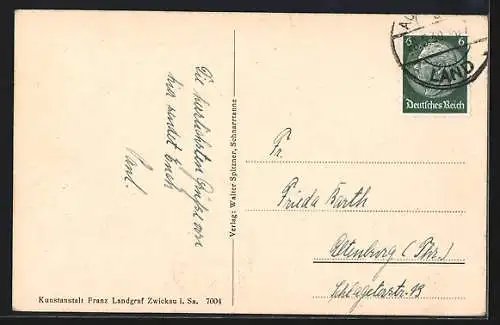 Die herzlichsten Grüße von
hier sendet Euch
Paul.
Verlag: Walter Spitzner, Schnarrtanne
Kunstanstalt Franz Landgraf Zwickau i. Sa. 7004
6 6
Deutsches Reich
LAND
Fr.
Frieda Barth
Altenburg (Thr.)
Schlageterstr. 13